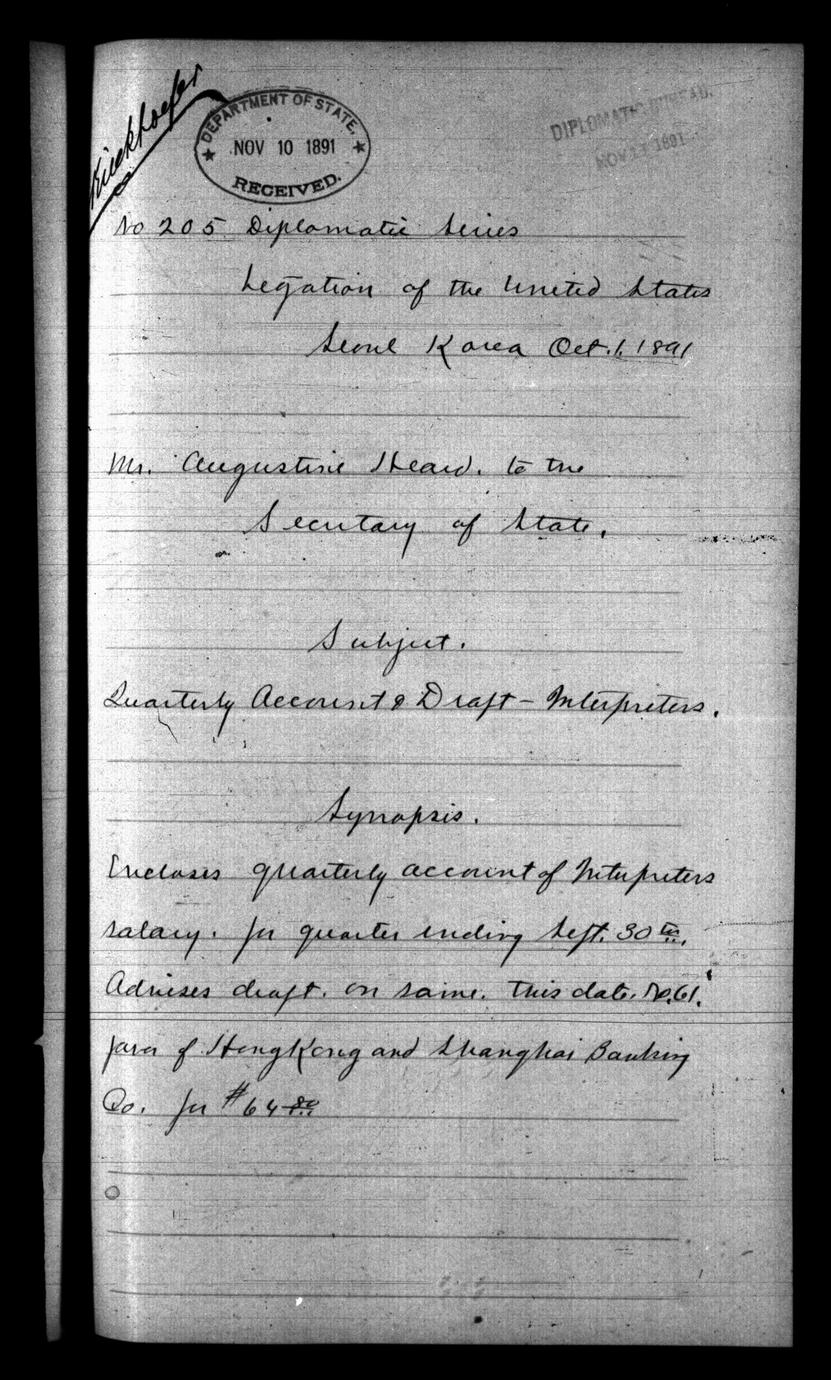 Kieckhoefer
DEPARTMENT OF STATE.
NOV 10 1891
RECEIVED.
DIPLOMATIC BUREAU.
NOV 11 1891
No 205 Diplomatic Series
Legation of the United States
Seoul Korea Oct. 1. 1891
Mr. Augustine Heard. to the
Secretary of State.
Subject.
Quarterly Account & Draft - Interpreters.
Synopsis.
Encloses quarterly account of Interpreters
salary. for quarter ending Sept. 30th.
Advises draft. on same. this date. No. 61.
favor of HongKong and Shanghai Banking
Co. for $64